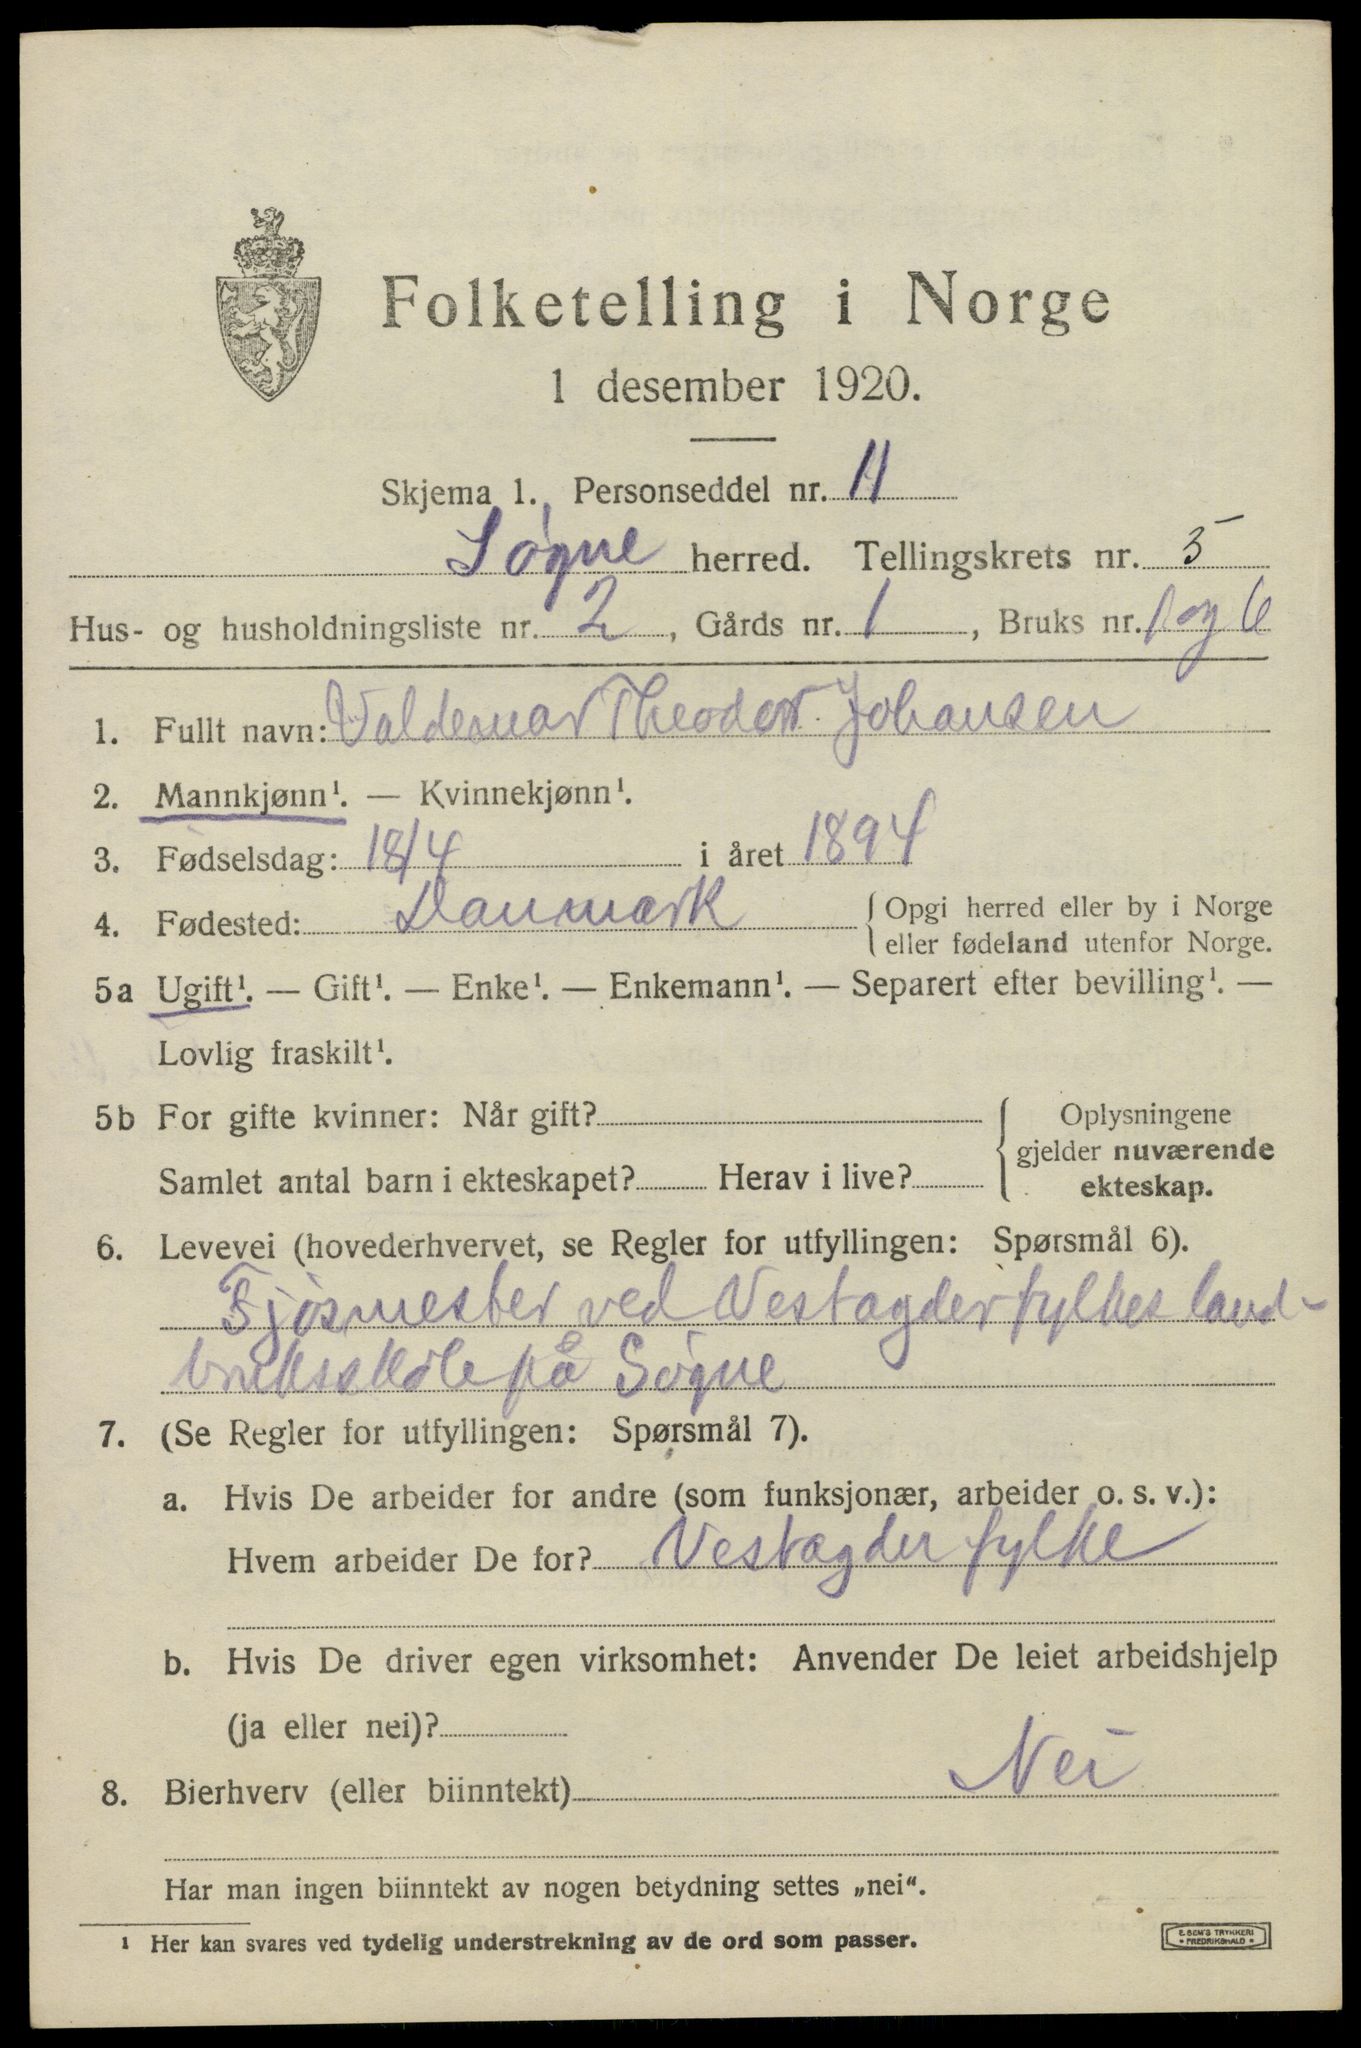 Folketelling i Norge
1 desember 1920.
Skjema 1. Personseddel nr. 11
Søgne herred. Tellingskrets nr. 5
Hus- og husholdningsliste nr. 2, Gårds nr. 1, Bruks nr. 1 og 6
1. Fullt navn: Valdemar Theodor Johansen
2. Mannkjønn¹. — Kvinnekjønn¹.
3. Fødselsdag: 18/4 i året 1894
4. Fødested: Danmark { Opgi herred eller by i Norge
eller fødeland utenfor Norge.
5a Ugift¹. — Gift¹. — Enke¹. — Enkemann¹. — Separert efter bevilling¹. —
Lovlig fraskilt¹.
5b For gifte kvinner: Når gift? { Oplysningene
gjelder nuværende
Samlet antal barn i ekteskapet? Herav i live? ekteskap.
6. Levevei (hovederhvervet, se Regler for utfyllingen: Spørsmål 6).
Fjøsmester ved Vestagder fylkes land-
bruksskole på Søgne
7. (Se Regler for utfyllingen: Spørsmål 7).
a. Hvis De arbeider for andre (som funksjonær, arbeider o. s. v.):
Hvem arbeider De for? Vestagder fylke
b. Hvis De driver egen virksomhet: Anvender De leiet arbeidshjelp
(ja eller nei)?
8. Bierhverv (eller biinntekt) Nei
Har man ingen biinntekt av nogen betydning settes „nei“.
¹ Her kan svares ved tydelig understrekning av de ord som passer.
E. SEM'S TRYKKERI
* FREDRIKSHALD *